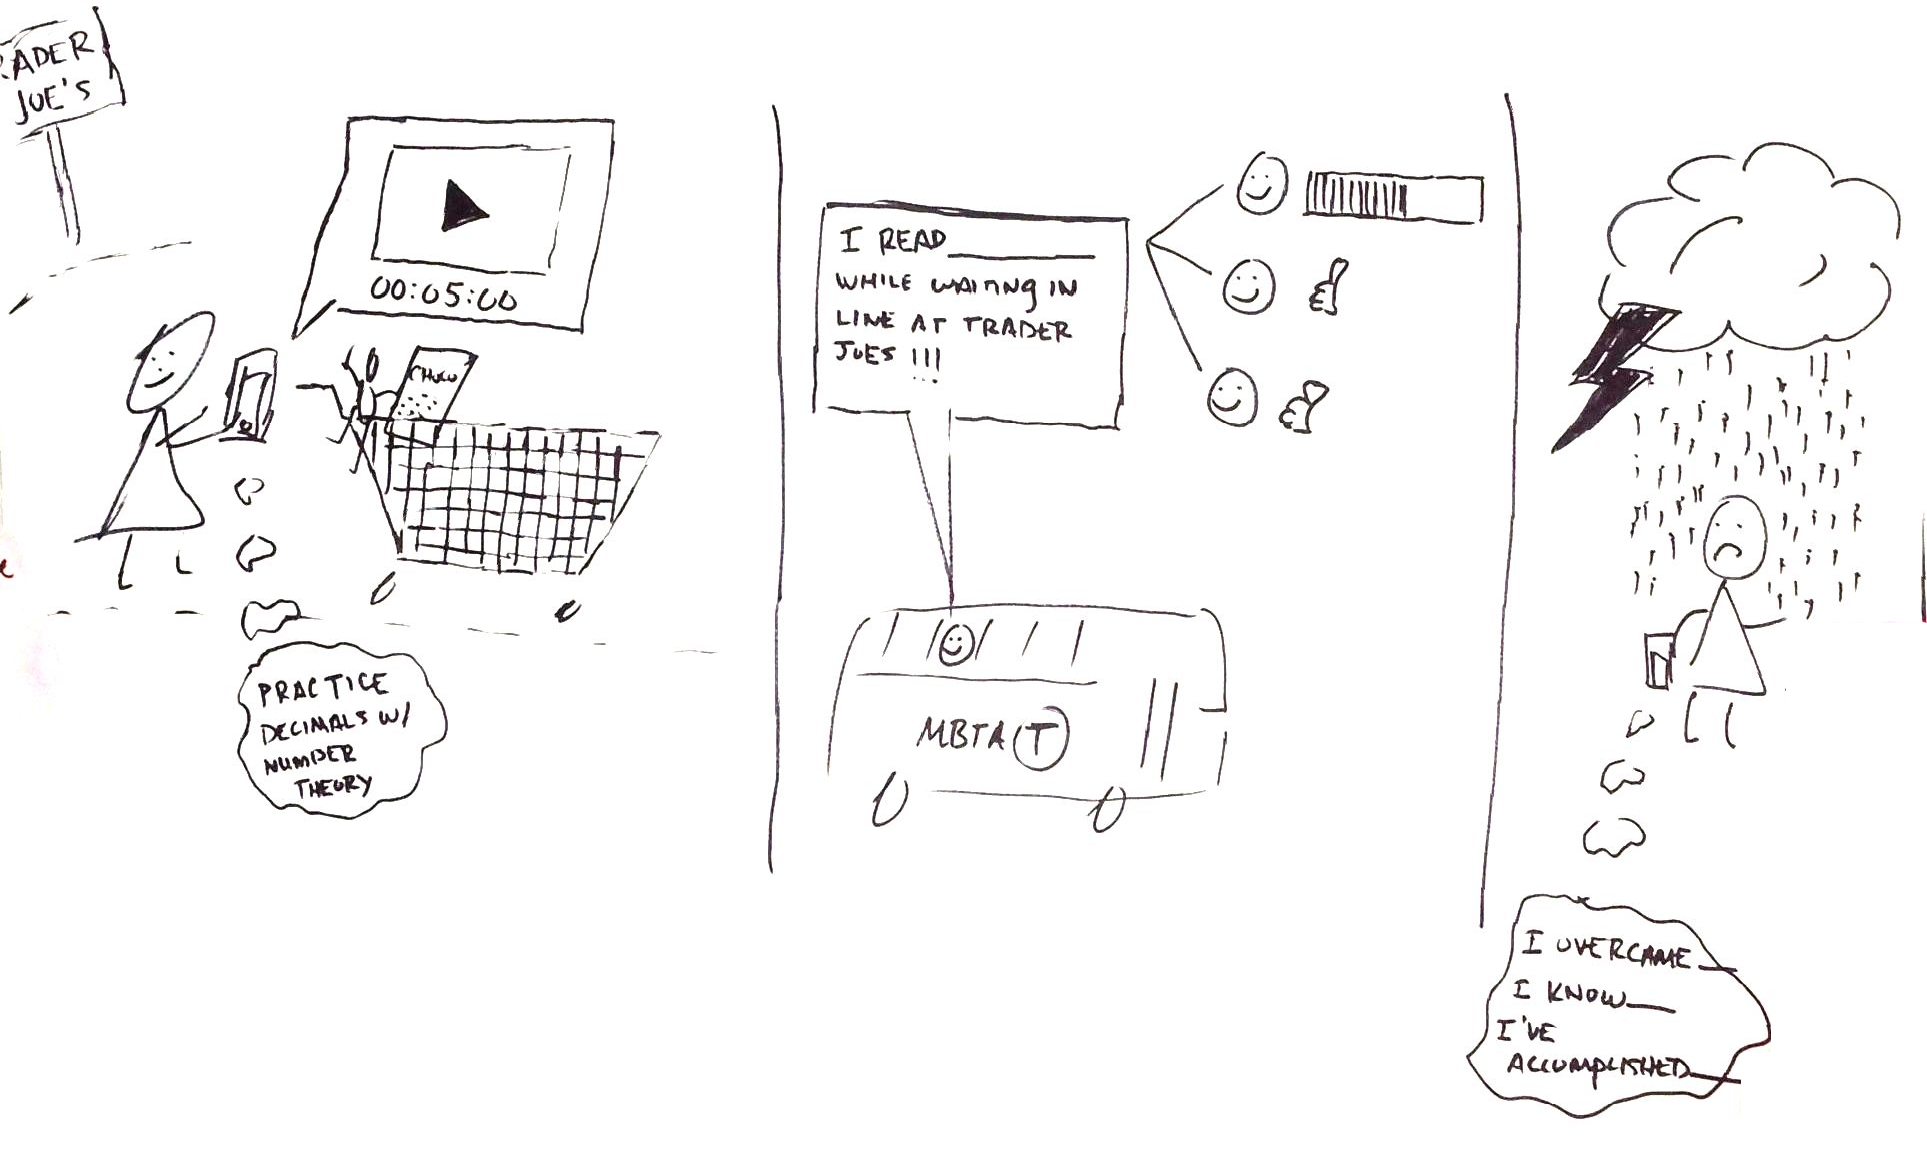 RADER
JOE'S
00:05:00
PRACTICE
DECIMALS W/
NUMBER
THEORY
I READ ______
WHILE WAITING IN
LINE AT TRADER
JOES !!!
MBTA T
I OVERCAME __
I KNOW __
I'VE
ACCOMPLISHED __